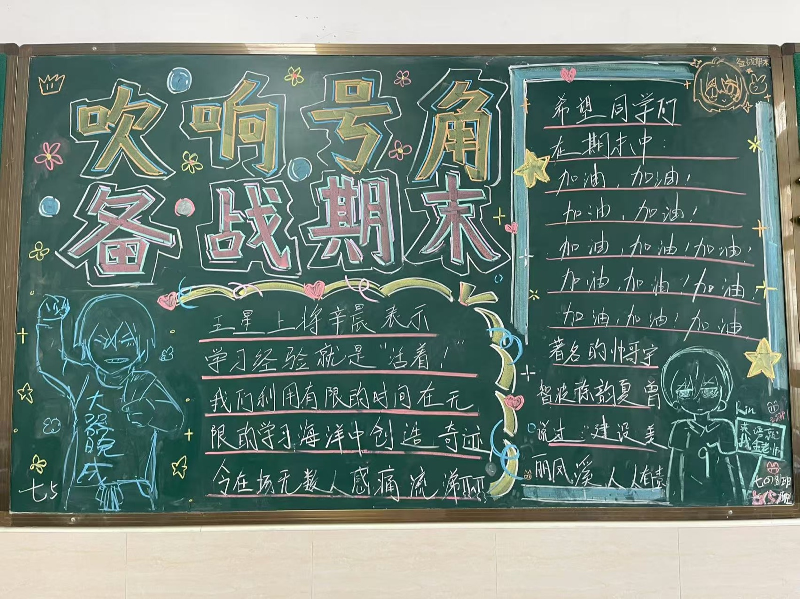 吹响号角
备战期末
五星上将辛晨表示
学习经验就是“活着！”
我们利用有限的时间在无
限的学习海洋中创造奇迹
令在场无数人感痛流涕啊
希望同学们
在期末中：
加油，加油！
加油，加油！
加油，加油！加油！
加油，加油！加油！
加油，加油！加油
著名的帅哥宇
智波陈韵真曾
说过：建设美
丽凤溪，人人有责
七5
备战期末